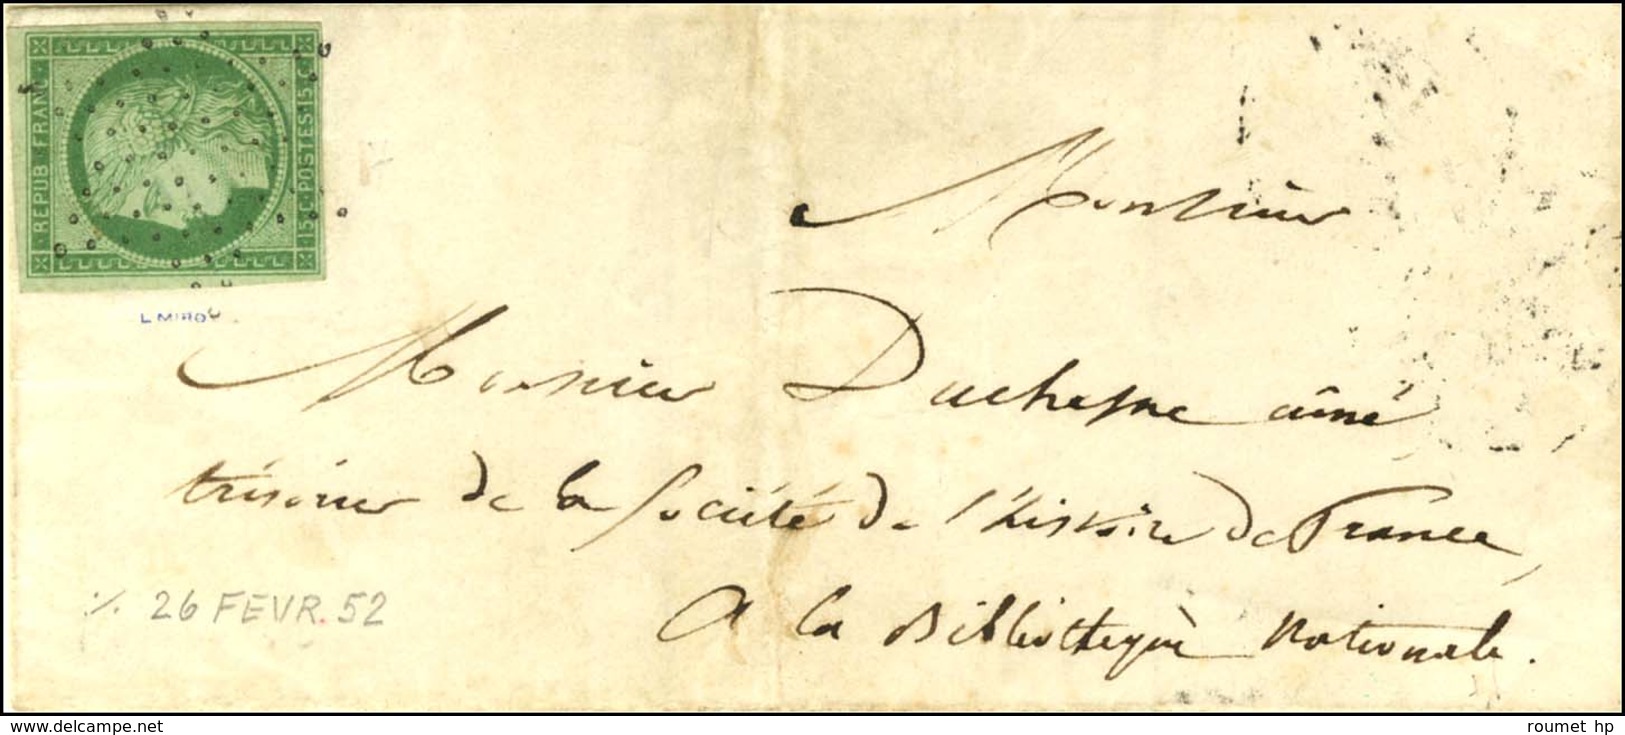 REPUB FRANC
15 c. POSTES 15 c.
L MIRO
Monsieur
Monsieur Duchesne aîné
trésorier de la Société de l'histoire de France,
A la Bibliothèque Nationale.
./. 26 FEVR. 52
www.delcampe.net
roumet hp